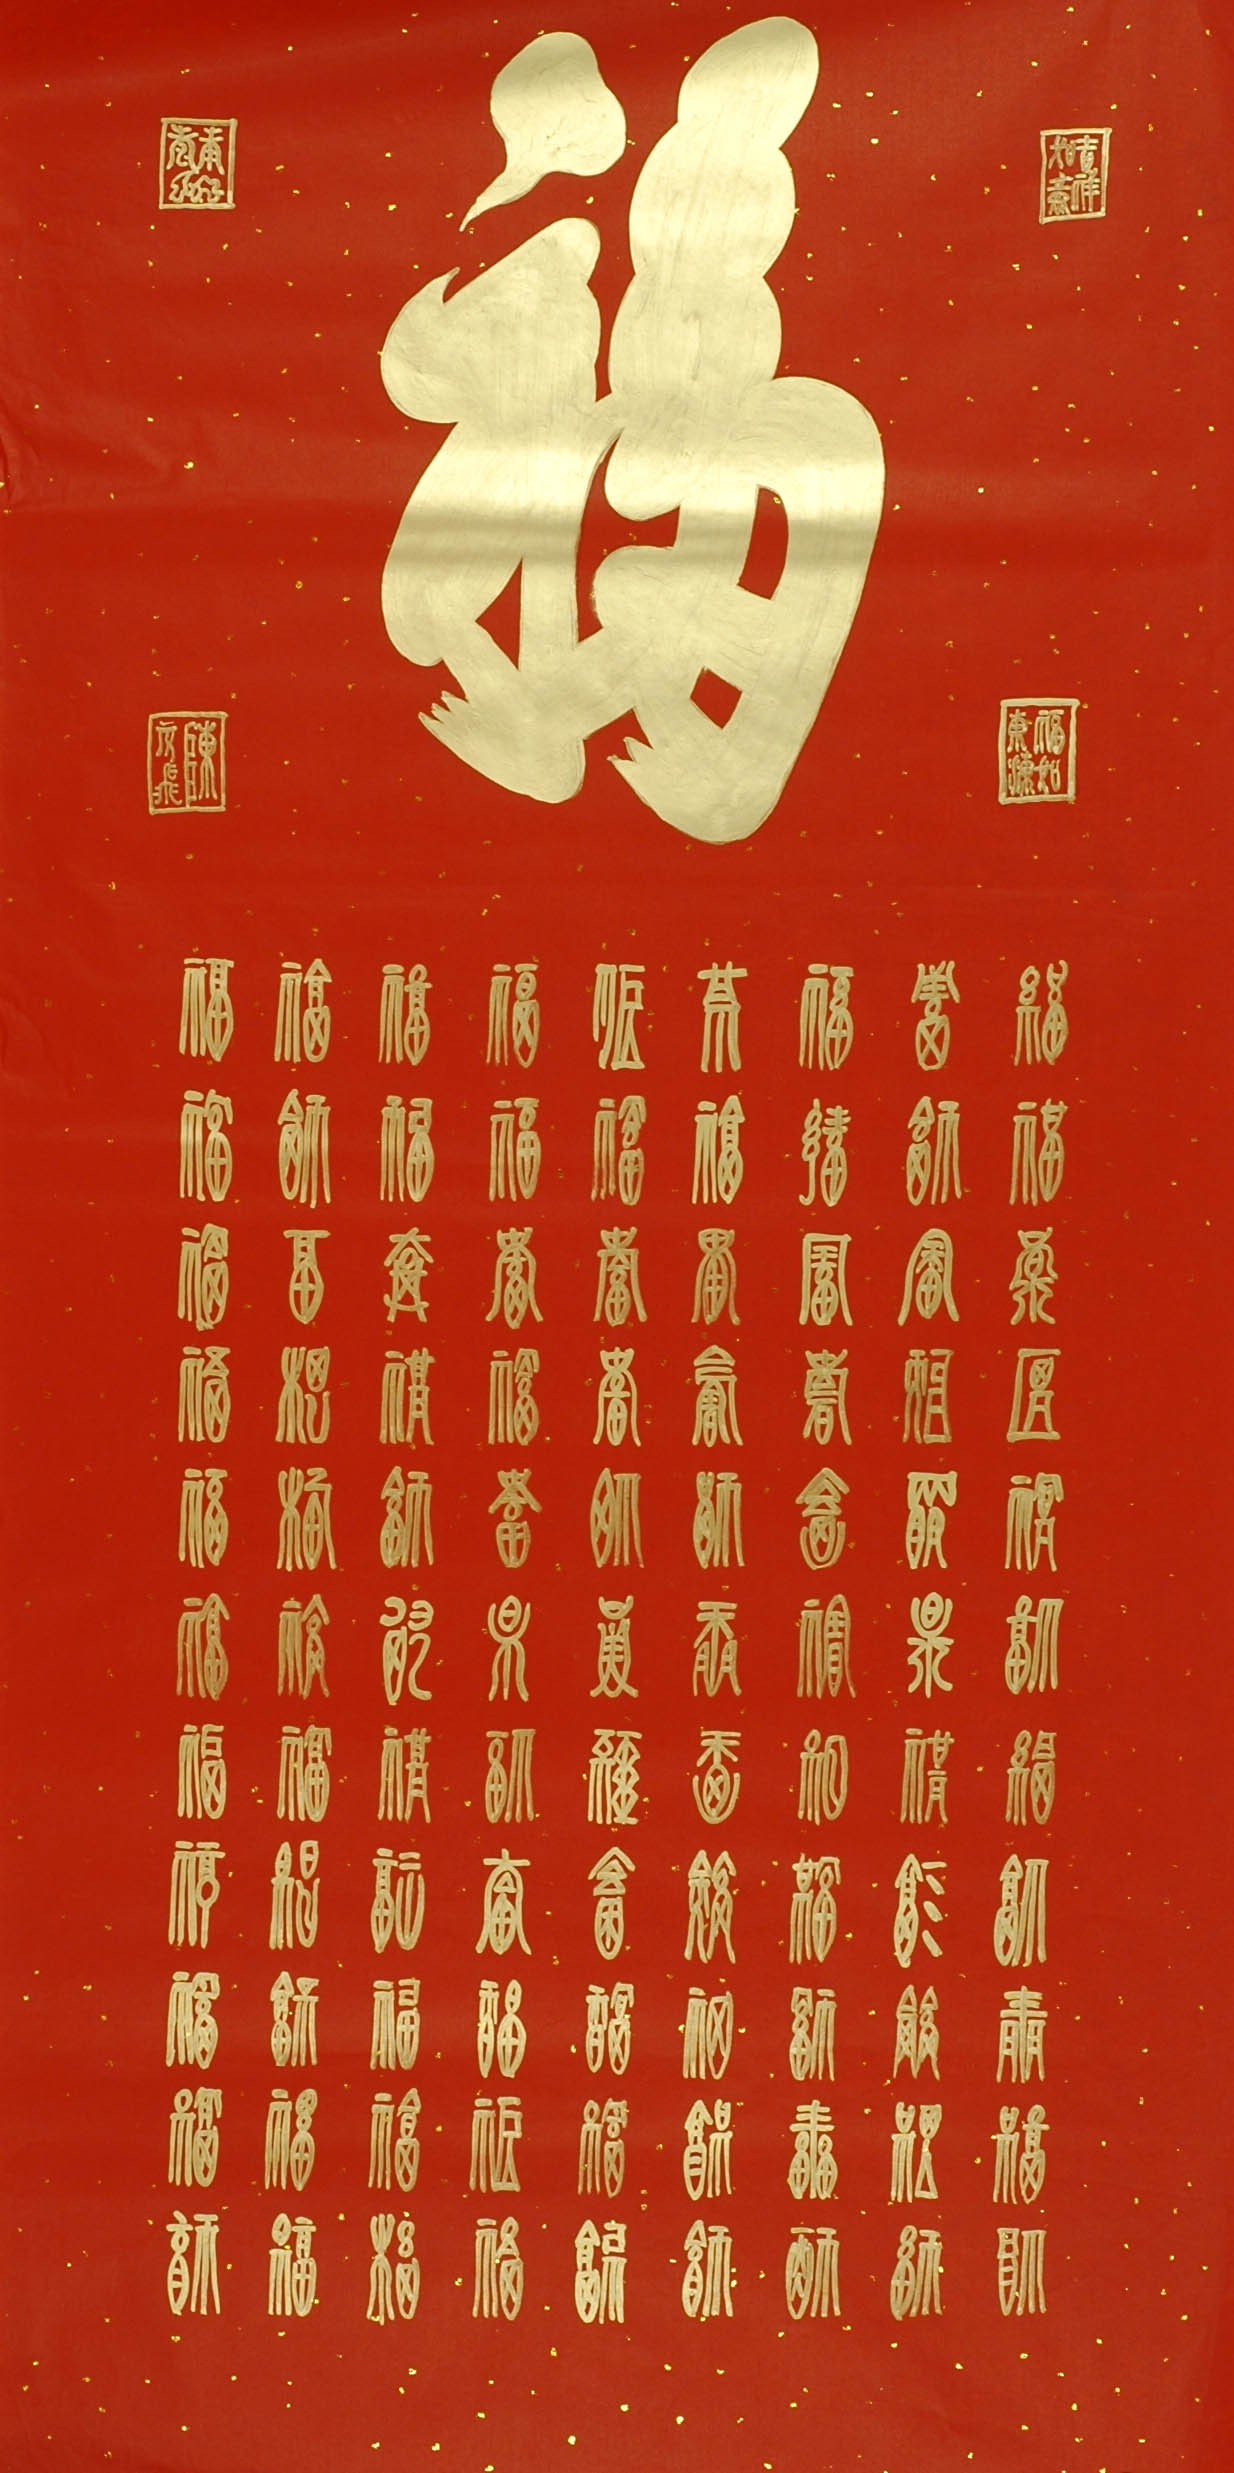 福
吉祥如意
福如東海
陳文飛
福福福福福福福福福福福
福福福福福福福福福福福
福福福福福福福福福福福
福福福福福福福福福福福
福福福福福福福福福福福
福福福福福福福福福福福
福福福福福福福福福福福
福福福福福福福福福福福
福福福福福福福福福福福